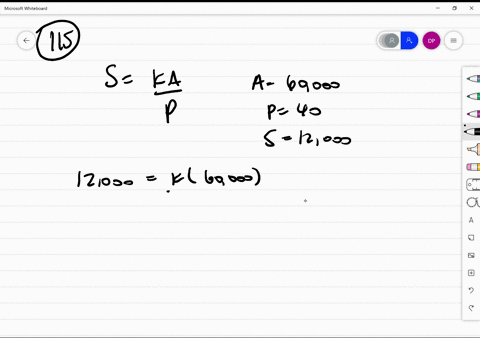 Microsoft Whiteboard
115
DP
S = KA / P
A = 60,000
P = 40
S = 12,000
12,000 = K(60,000)